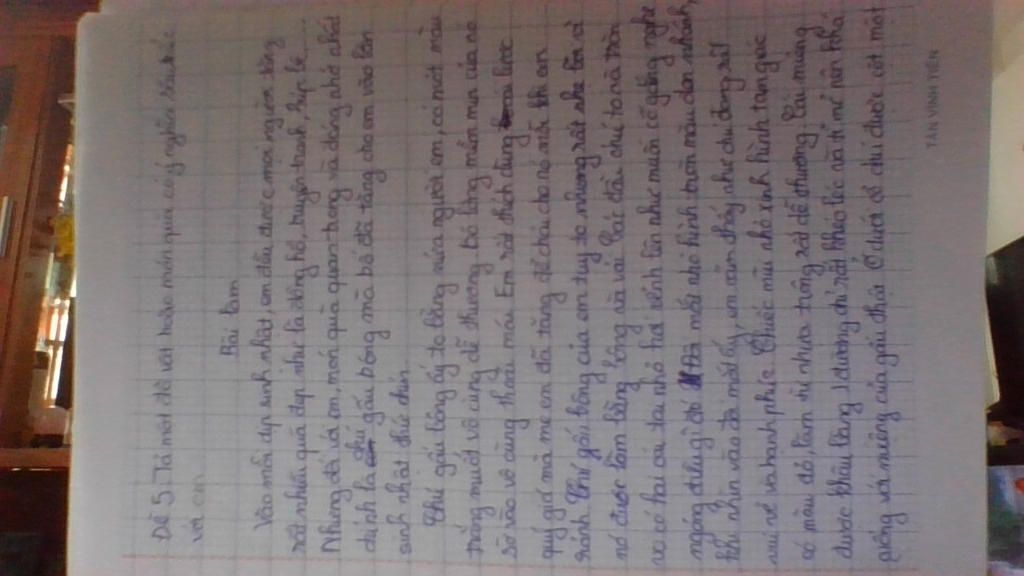 Đề 5: Tả một đồ vật hoặc món quà có ý nghĩa sâu sắc
với em
Bài làm
Vào mỗi dịp sinh nhật, em đều được mọi người tặng
rất nhiều quà đẹp như là đồng hồ, truyện tranh, hộp
Nhưng đối với em, món quà quan trọng và đáng nhớ nhất
chính là chú gấu bông mà bố đã tặng cho em vào lần
sinh nhật thứ chín.
Chú gấu bông ấy to bằng nửa người em, có một màu
trắng muốt vô cùng dễ thương. Bộ lông mềm mịn của nó
sờ vào vô cùng thoải mái. Em rất thích dùng lược
quý giá mà mẹ em đã tặng để chải cho nó mỗi khi em
rảnh. Chú gấu bông của em tuy to nhưng rất nhẹ bởi vì
nó được làm bằng bông và vải. Cái đầu chú to và tròn
xoe có hai cái tai nhỏ hơi vểnh lên như muốn cố gắng nghe
ngóng điều gì đó. Đôi mắt nhỏ hình tròn màu đen nhánh,
khi nhìn vào đôi mắt ấy, em cảm thấy như chú đang rất
vui vẻ và hạnh phúc. Chiếc mũi nhỏ xinh hình tam giác
có màu đỏ, làm từ nhựa trông rất dễ thương. Cái miệng
được khâu bằng 1 đường chỉ rất khéo léo và tỉ mỉ nên khá
giống với miệng của gấu thật. Ở dưới cổ chú được cột một
TÂN VĨNH TIẾN